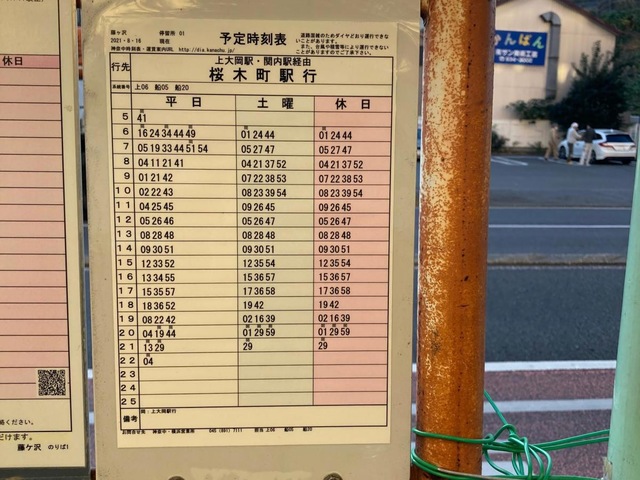 休日
絡ください。
だけます。
藤ケ沢 のりば1
藤ケ沢 停留所 01
2021・8・16 現在
神奈中時刻表・運賃案内URL http://dia.kanachu.jp/
予定時刻表
道路混雑のためダイヤどおり運行できない
ことがあります。
また、台風や積雪等により運行できない
ことがありますのでご了承下さい。
行先 上大岡駅・関内駅経由
桜木町駅行
系統番号 上06 船05 船20
平日 土曜 休日
5 41
6 16 24 34 44 49 01 24 44 01 24 44
7 05 19 33 44 51 54 05 27 47 05 27 47
8 04 11 21 41 04 21 37 52 04 21 37 52
9 01 21 42 07 22 38 53 07 22 38 53
10 02 22 43 08 23 39 54 08 23 39 54
11 04 25 45 09 26 45 09 26 45
12 05 26 46 05 26 47 05 26 47
13 08 28 48 08 28 48 08 28 48
14 09 30 51 09 30 51 09 30 51
15 12 33 52 12 35 54 12 35 54
16 13 34 55 15 36 57 15 36 57
17 15 35 57 17 36 58 17 36 58
18 18 36 52 19 42 19 42
19 08 22 42 02 16 39 02 16 39
20 04 19 44 01 29 59 01 29 59
21 13 29 29 29
22 04
23
24
25
備考 岡：上大岡駅行
お問合せ先 神奈中・横浜営業所 045（891）7111 担当 上06 船05 船20
かんばん